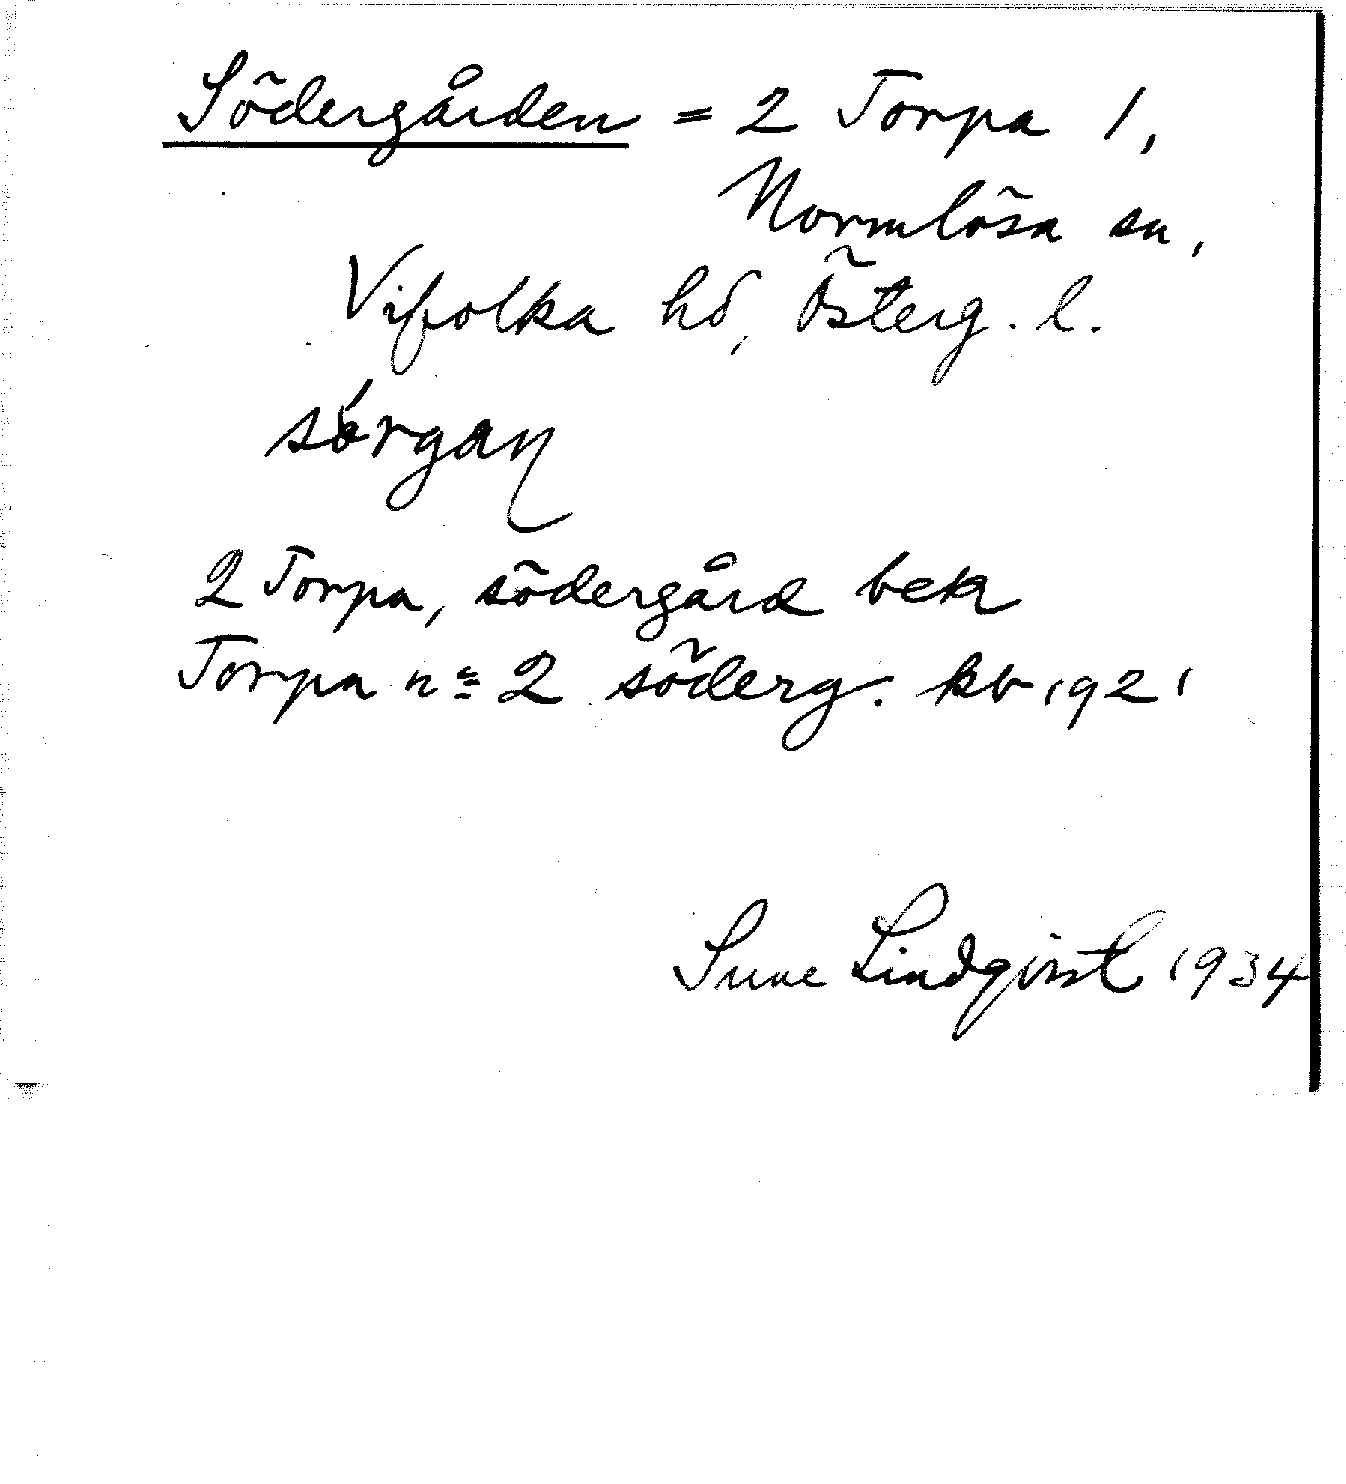 Södergården = 2 Torpa 1,
Normlösa sn,
Vifolka hd, Österg. l.
sörgaɳ
2 Torpa, södergård bek
Torpa n:o 2 söderg. kb 1921
Sune Lindqvist 1934